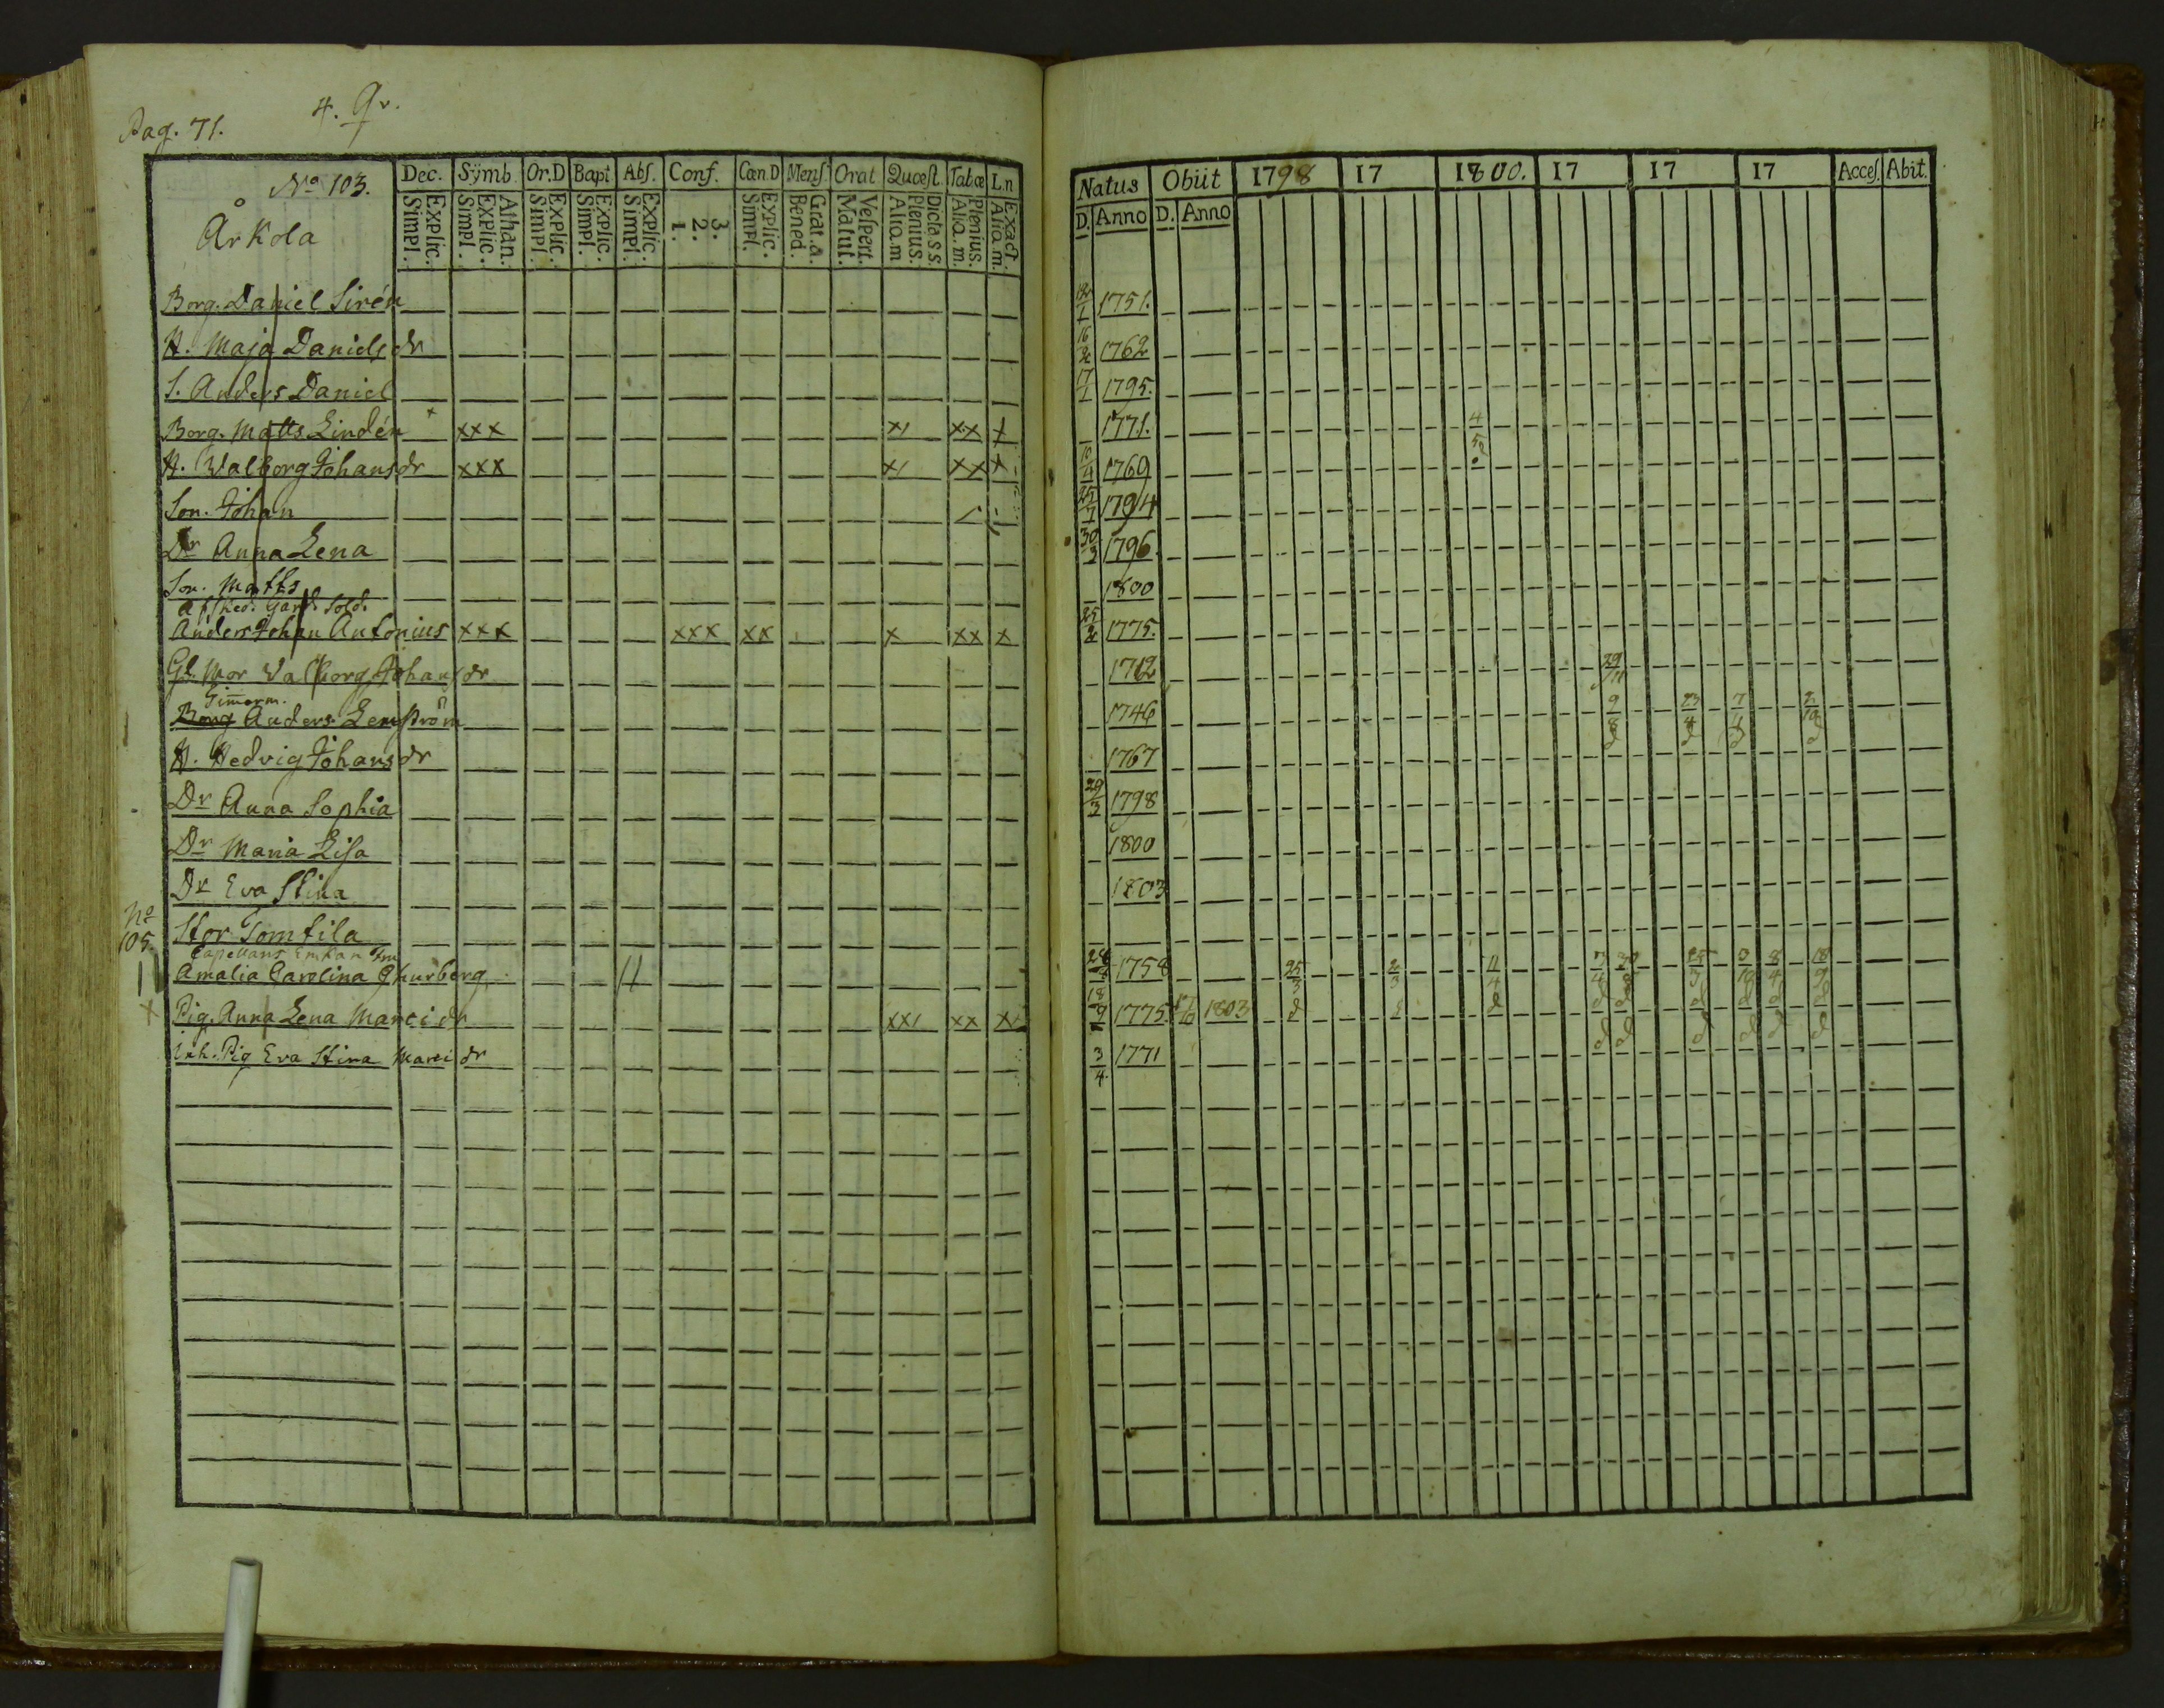 Pag. 71.
4. Qv.
No 103.
Årkola
Dec. Sÿmb. Or.D Bapt Abſ. Conf. Cœn.D Menſ. Orat Quœſt. Tabœ L.n
Explic. Simpl. Athan. Explic. Simpl. Explic. Simpl. Explic. Simpl. Explic. Simpl. 3. 2. 1. Explic. Simpl. Grat.a. Bened. Veſpert. Matut. Dicta s s. Plenius. Alio.m Plenius. Alia.m. Exact. Alia.m.
Borg. Daniel Sirén
H. Maja Danielsdr
S. Anders Daniel
Borg. Matts Lindén xxx xx x
H. Walborg Johansdr xxx xx x
Son. Johan
Dr Anna Lena
Son. Matts
Afsked. Gard. Sold.
Anders Johan Antonius xxx xxx xx x xx x
Gl. Mor Valborg Johansdr
Timerm.
Borg Anders Lenström
H. Hedvig Johansdr
Dr Anna Sophia
Dr Maria Lisa
Dr Eva Stina
No
105.
Stor Tomtila
Capellans Enkan Fru
Amalia Carolina Thurberg
Pig. Anna Lena Marci dr xx
Inh. Pig Eva Stina Marci dr
Natus Obiit 1798 17 1800. 17 17 17 Acceſ. Abit.
D. Anno D. Anno
1751.
16/2 1762
17/1 1795.
1771. 4/5
1769
25/7 1794
30/3 1796
1800
25/2 1775.
1712 29/11
1746 9/8 23/4 7/4 2/10
1767
29/3 1798
1800
1803
1758 25/3 2/3 11/4
18/9 1775 1803
3/4 1771